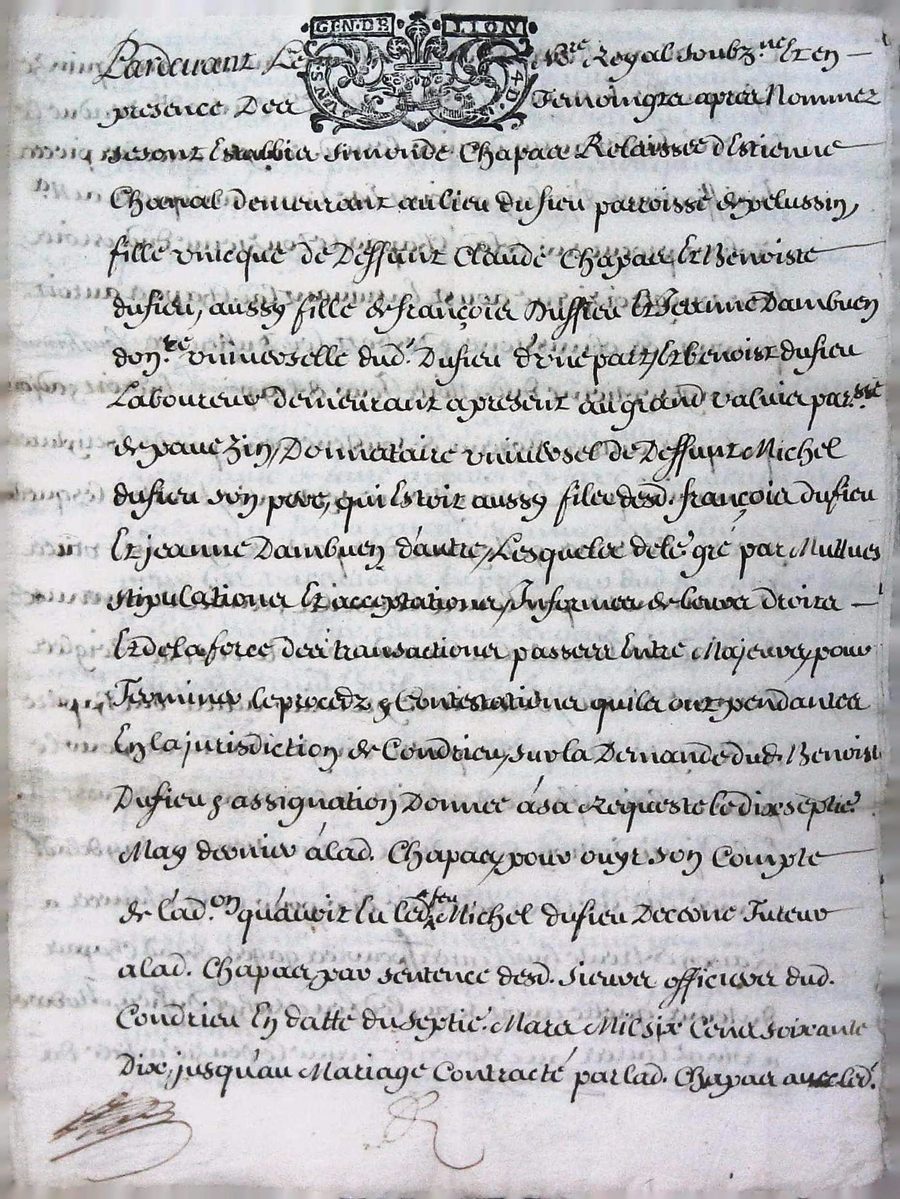 GIN·DE LION
Pardevant Le No.re Royal Soubz.ne Et en
presence Des Temoingts apres Nommez
se sont Establis Simonde Chapas Relaissee d'Estienne
Chanal demeurant au lieu du fieu parroisse de pelussin,
fille unicque de Deffunt Claude Chapas Et Benoiste
dufieu, aussy fille de françois Duffieu Et Jeanne Dambuen
don.re universelle dud. Dufieu d'une part, Et benoist dufieu
Laboureur demeurant a present au grand val par.sse
de pavezin, Donnataire universel de Deffunt Michel
dufieu son pere, qui Estoit aussy filz desd. françois dufieu
Et jeanne Dambuen d'autre, Lesquelles de le gré par Mutues
stipulations Et acceptations, Informes de leurs droits
Et de la force des transactions passees Entre Majeurs, pour
Terminer le procedz & Contestations quils ont pendantes
En la jurisdiction de Condrieu, sur la Demande dud. Benoist
Dufieu & assignation Donnee à sa Requeste le dix septie.
May dernier à lad. Chapas, pour ouyr son Compte
de l'ad.on qu'avoit Eu led. feu Michel dufieu Tuteur
a lad. Chapas, par sentence desd. sieurs officiers dud.
Condrieu En datte du septie. Mars Mil six Cens soixante
Dix, jusqu'au Mariage Contracté par lad. Chapas avec led.